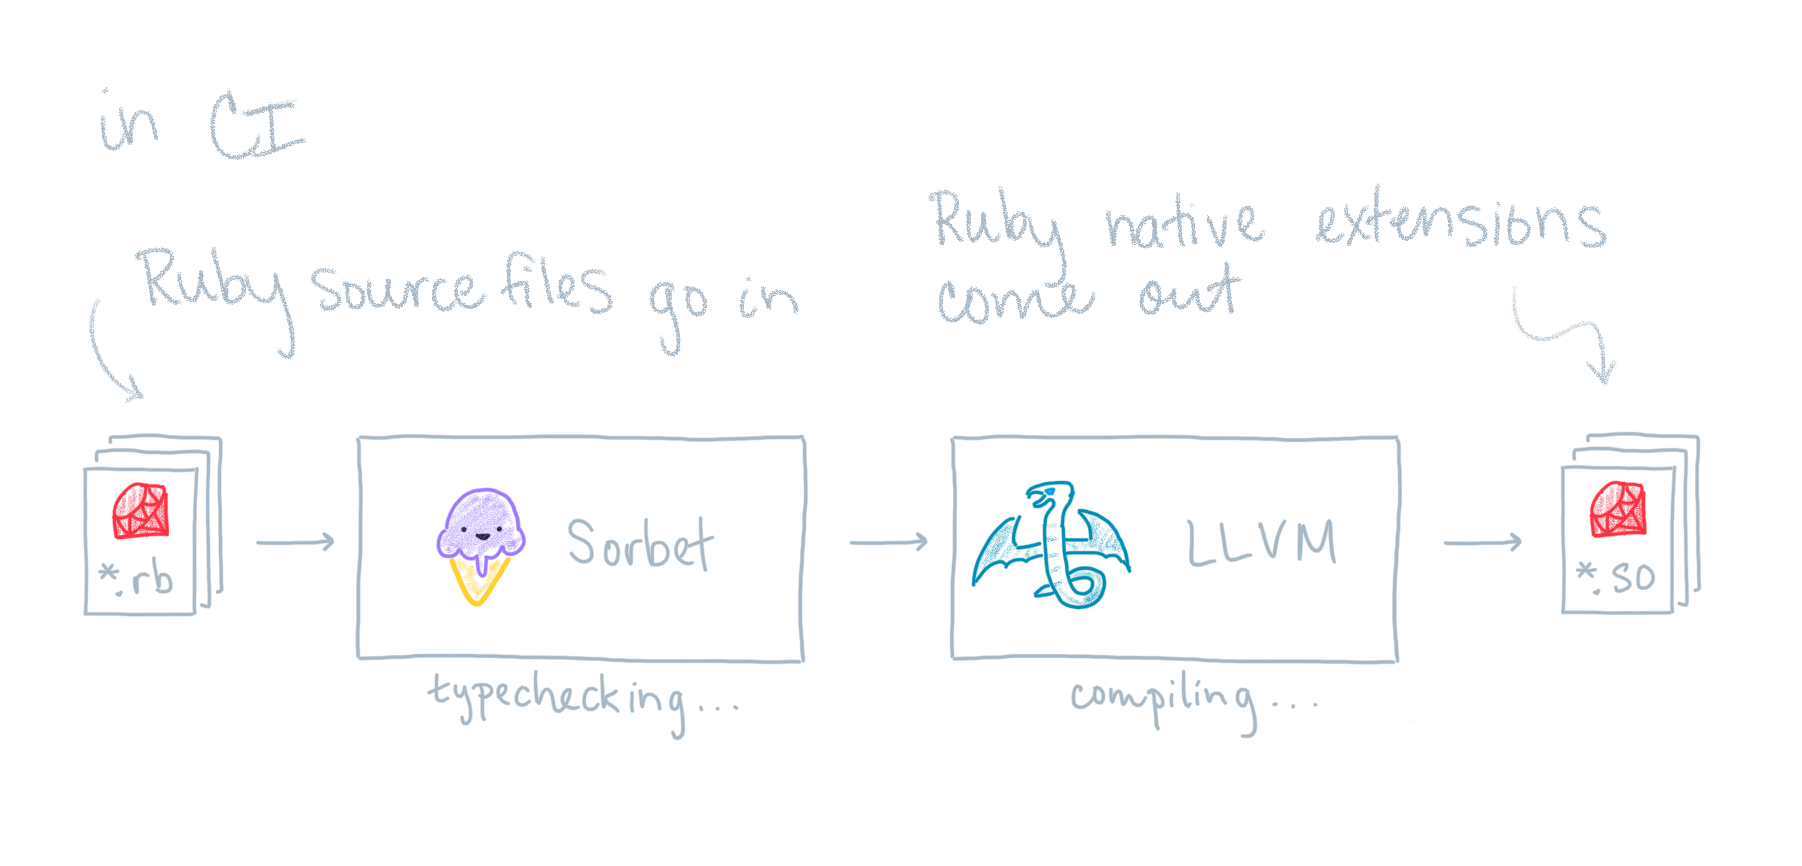 in CI
Ruby source files go in
Ruby native extensions
come out
*.rb
Sorbet
LLVM
*.so
typechecking...
compiling...